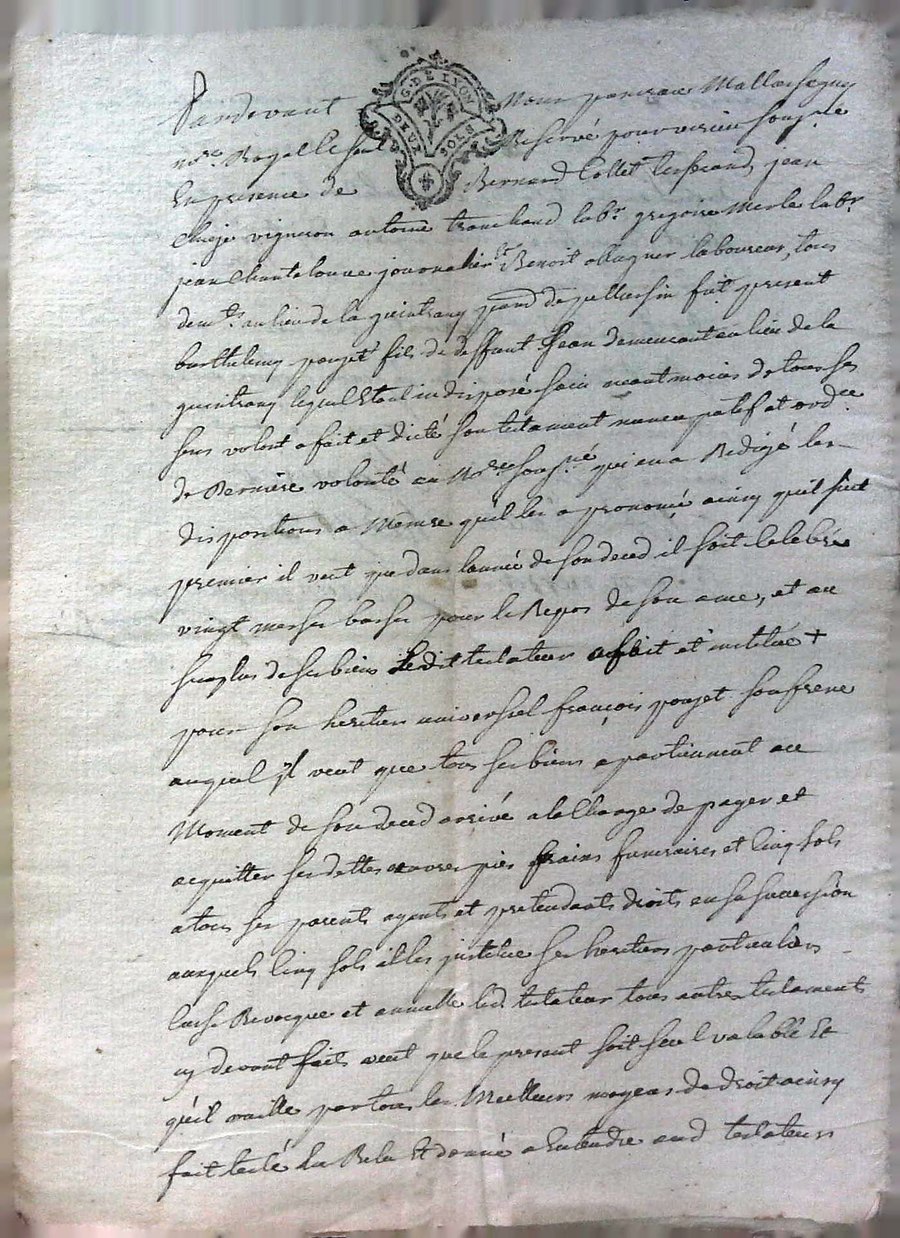 G. DE LYON
DEUX SOLS
Pardevant Nous
no.re Royal Reservé pour soussig.né
En presence de Bernard Collet jean
vigneron antoine tranchand lab.r gregoire Merle lab.r
jean Chantelouve journalier et Benoit ollagner laboureur, tous
dem.ts au lieu de la guintrany parr. de pellussin fut present
barthelemy poujet fils de deffunt Jean demeurant au lieu de la
guintrany lequel Etant indisposé sain neantmoins de tous ses
sens volont a fait et dicté son testament nuncupatif et ord.ce
de Derniere volonté au No.re sous.né qui en a Redigé les
dispositions a Mesure qu'il les a prononcé ainsy quil suit
premier il veut que dans lannée de son deced il soit Celebré
vingt messes basses pour le Repos de son ame, et au
surplus de ses biens ledit testateur a fait et institué +
pour son heritier universel françois poujet son frere
auquel jl veut que tous ses biens apartiennent au
Moment de son deced arrivé a la Charge de payer et
acquitter ses dettes œuvres pies frains funeraires et Cinq sols
a tous ses parents agents et pretendants droits en sa succession
auxquels Cinq sols il les justitue ses heritiers particuliers
Casse Revocque et annulle led. testateur tous autres testaments
cy devant faits veut que le present soit seul valable Et
qu'il vaille par tous les Meilleurs moyens de droit ainsy
fait testé lu Relu Et donné a Entendre aud testateur